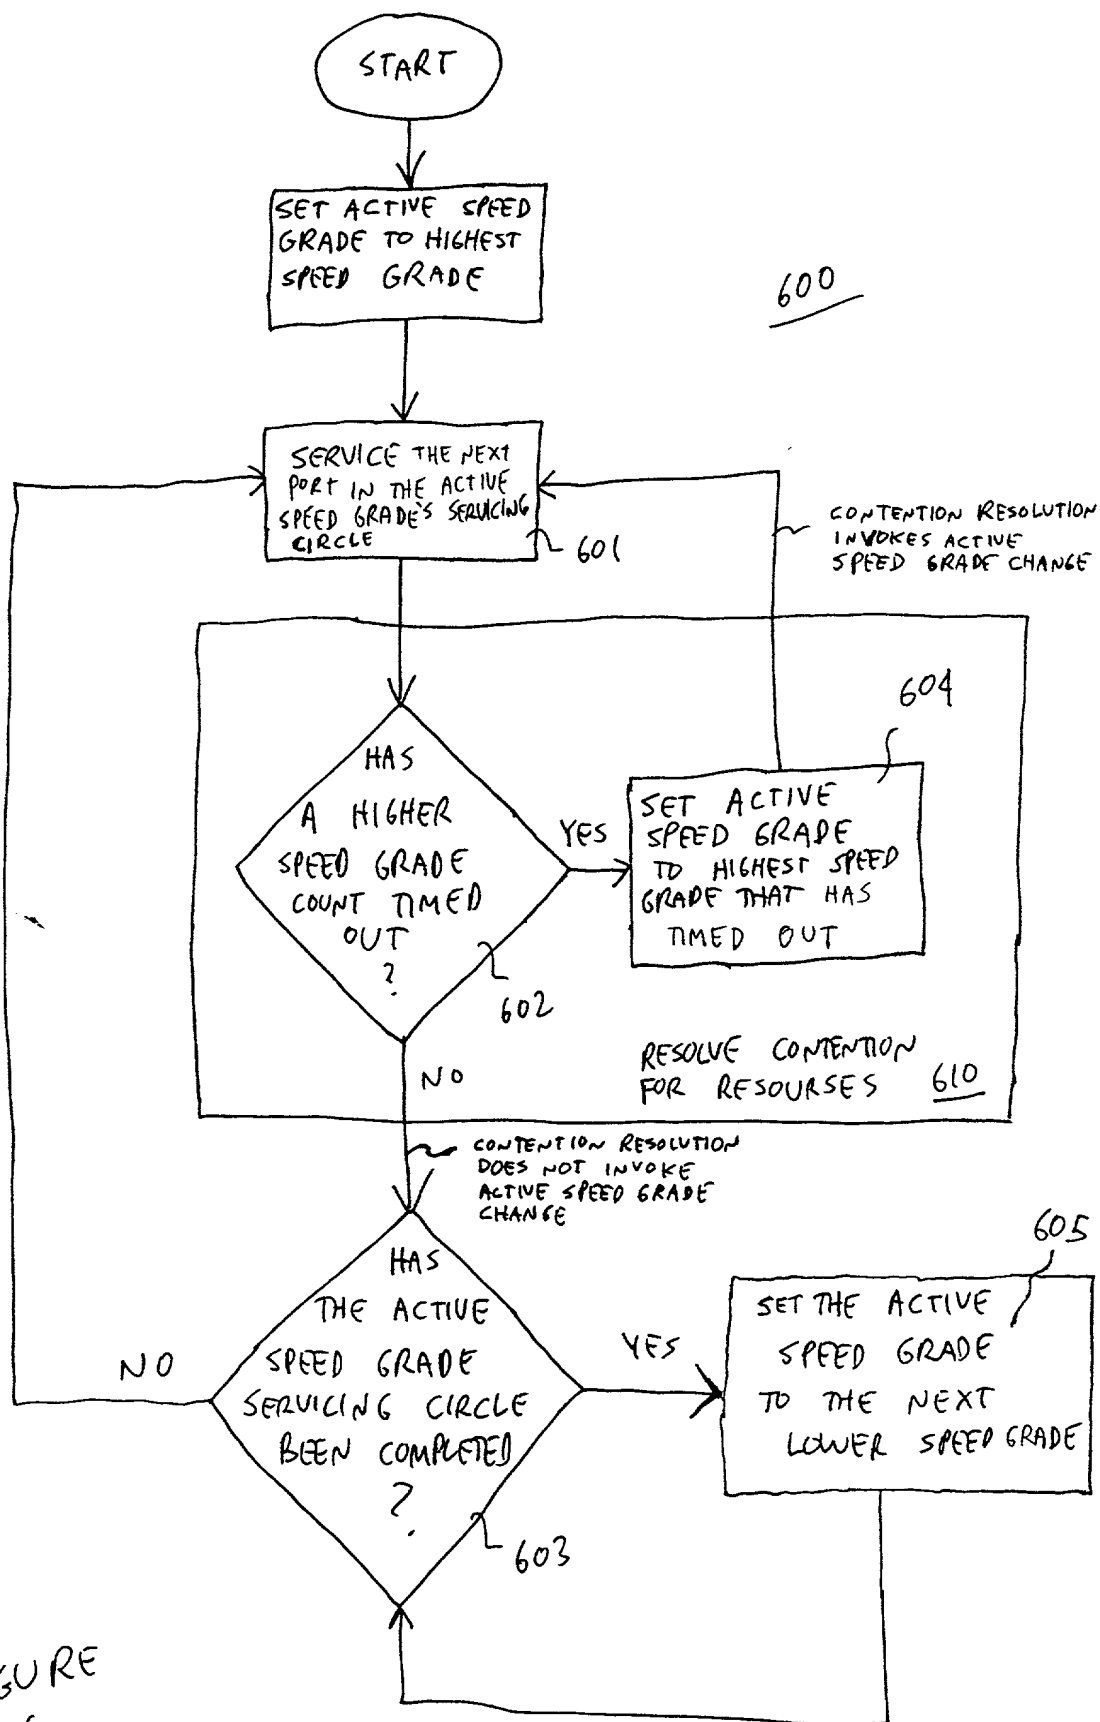 START
SET ACTIVE SPEED
GRADE TO HIGHEST
SPEED GRADE
600
SERVICE THE NEXT
PORT IN THE ACTIVE
SPEED GRADE'S SERVICING
CIRCLE
601
CONTENTION RESOLUTION
INVOKES ACTIVE
SPEED GRADE CHANGE
604
HAS
A HIGHER
SPEED GRADE
COUNT TIMED
OUT
?
602
YES
SET ACTIVE
SPEED GRADE
TO HIGHEST SPEED
GRADE THAT HAS
TIMED OUT
RESOLVE CONTENTION
FOR RESOURSES 610
NO
CONTENTION RESOLUTION
DOES NOT INVOKE
ACTIVE SPEED GRADE
CHANGE
605
HAS
THE ACTIVE
SPEED GRADE
SERVICING CIRCLE
BEEN COMPLETED
?
603
NO
YES
SET THE ACTIVE
SPEED GRADE
TO THE NEXT
LOWER SPEED GRADE
GURE